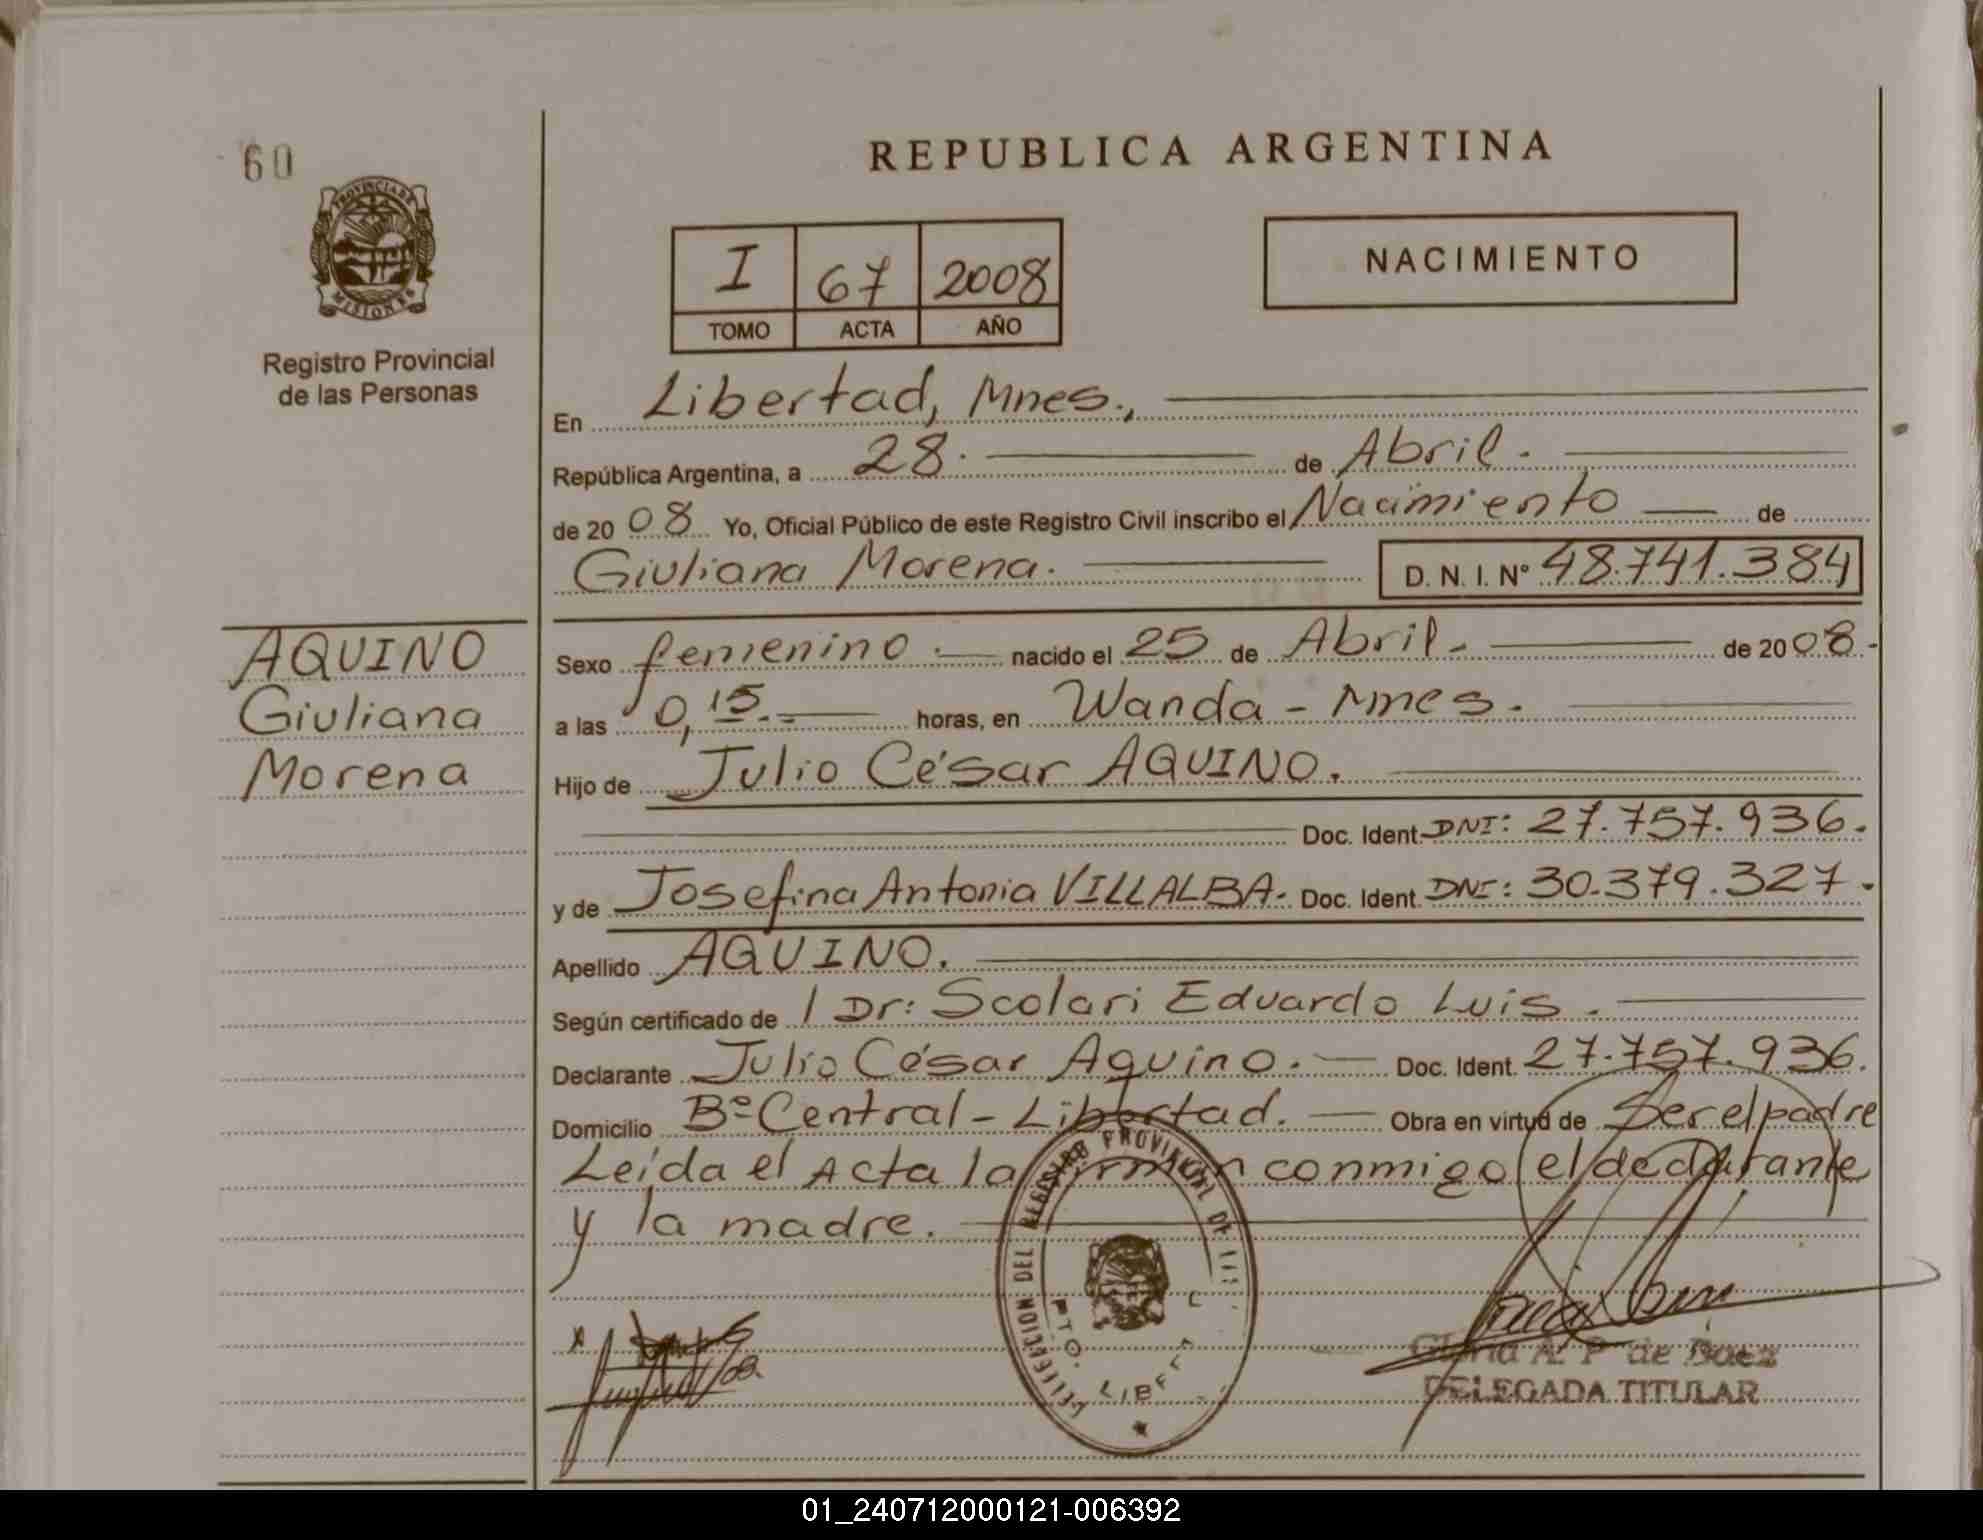 60
PROVINCIA DE
MISIONES
Registro Provincial
de las Personas
REPUBLICA ARGENTINA
I 67 2008
TOMO ACTA AÑO
NACIMIENTO
En Libertad, Mnes.,
República Argentina, a 28. de Abril.
de 2008 Yo, Oficial Público de este Registro Civil inscribo el Nacimiento de
Giuliana Morena. D. N. I. Nº 48.741.384
AQUINO
Giuliana
Morena
Sexo femenino. nacido el 25 de Abril. de 2008.-
a las 0,15.- horas, en Wanda - Mnes.
Hijo de Julio César AQUINO.
Doc. Ident. DNI: 27.757.936.
y de Josefina Antonia VILLALBA. Doc. Ident. DNI: 30.379.327.
Apellido AQUINO.
Según certificado de Dr: Scolari Eduardo Luis.
Declarante Julio César Aquino. Doc. Ident. 27.757.936.
Domicilio Bº Central - Libertad. Obra en virtud de Ser el padre
Leída el Acta la firman conmigo el declarante
y la madre.
DEL REGISTRO PROVINCIAL DE
PTO.
de Baez
DELEGADA TITULAR
01_240712000121-006392